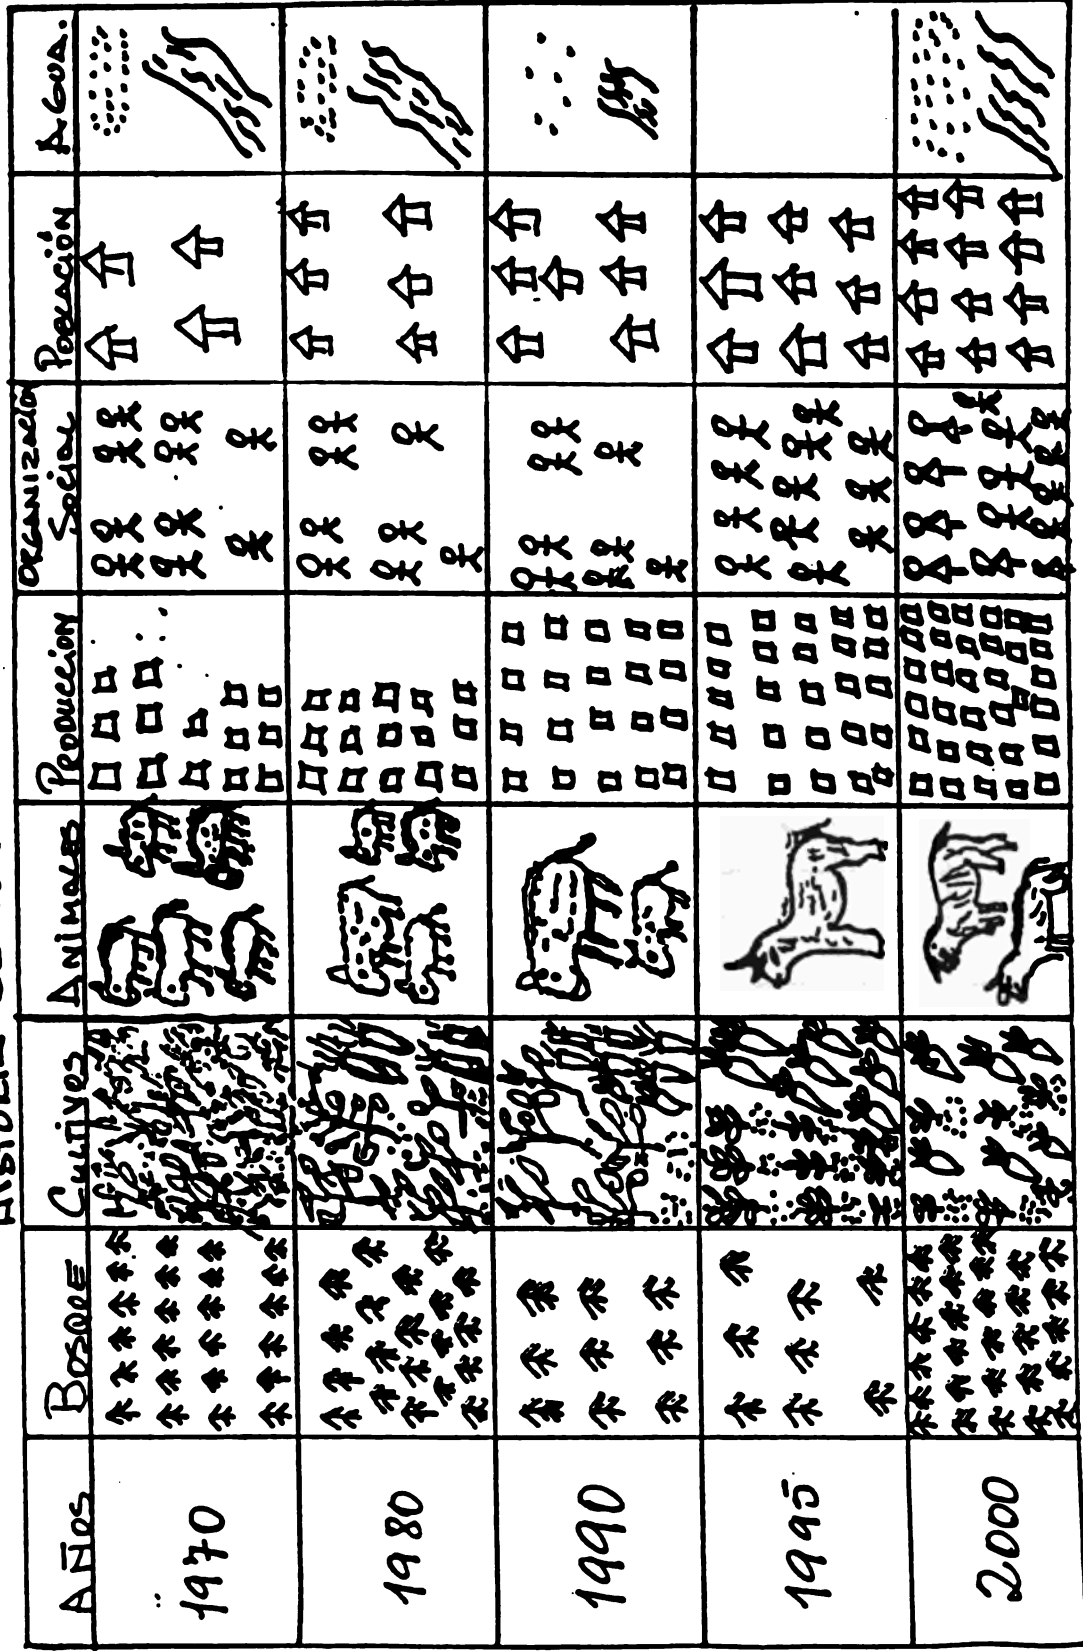 AÑOS BOSQUE CULTIVOS ANIMALES PRODUCCION ORGANIZACIÓN SOCIAL POBLACIÓN AGUA.
1970
1980
1990
1995
2000